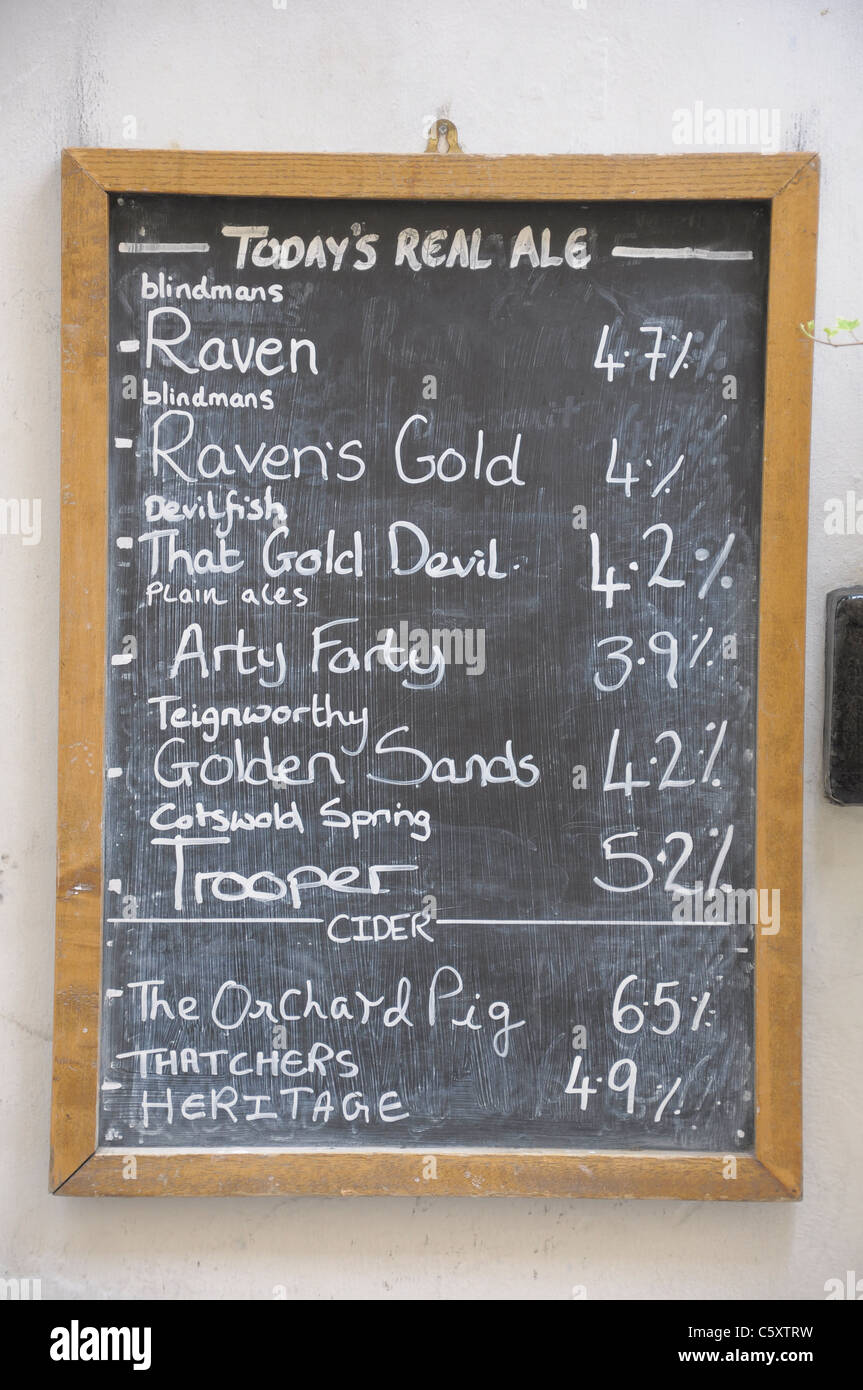 TODAY'S REAL ALE
blindmans
Raven 4.7%
blindmans
Raven's Gold 4%
Devilfish
That Gold Devil. 4.2%
Plain ales
Arty Farty 3.9%
Teignworthy
Golden Sands 4.2%
Cotswold Spring
Trooper 5.2%
CIDER
The Orchard Pig 6.5%
THATCHERS
HERITAGE 4.9%
alamy
Image ID: C5XTRW
www.alamy.com